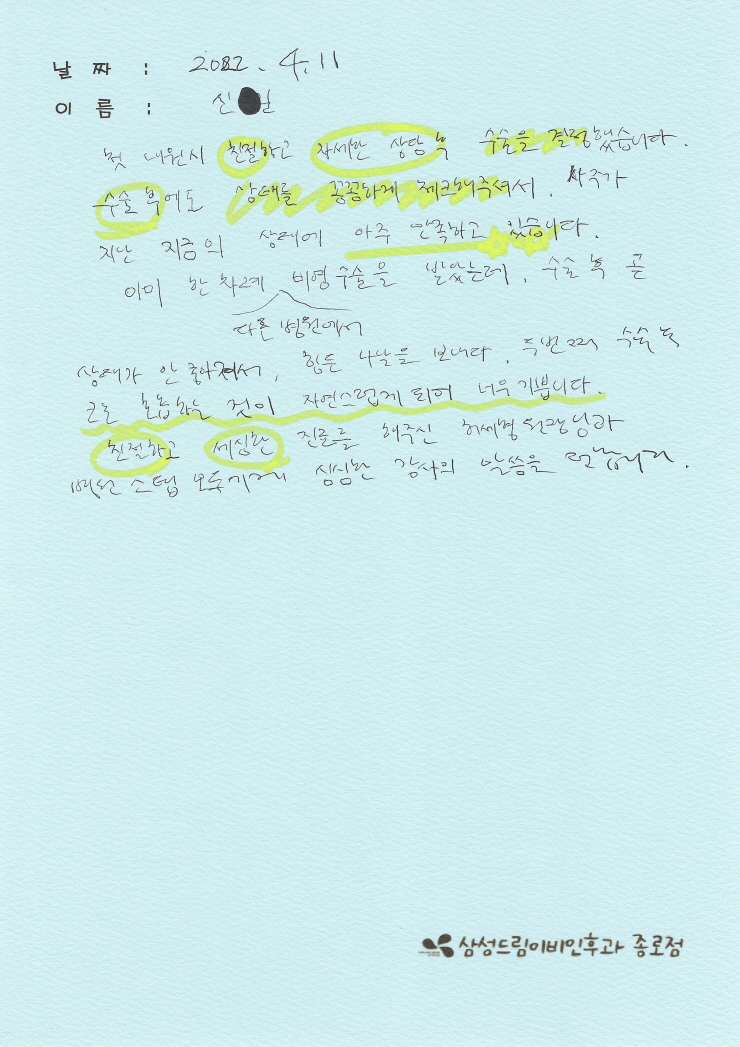 날 짜 : 2022. 4. 11
이 름 : 신 일
첫 내원시 친절하고 자세한 상담 후 수술을 결정했습니다.
수술 후에도 상태를 꼼꼼하게 체크해주셔서, 사주가
지난 지금의 상태에 아주 만족하고 있습니다.
이미 한 차례 비염 수술을 받았는데, 수술 후 곧
다른 병원에서
상태가 안 좋아져서, 힘든 나날을 보내다, 두번째 수술 후
코로 호흡하는 것이 자연스럽게 되어 너무 기쁩니다.
친절하고 세심한 진료를 해주신 허세형 원장님과
병원 스텝 모두에게 심심한 감사의 말씀을 전합니다.
삼성드림이비인후과 종로점